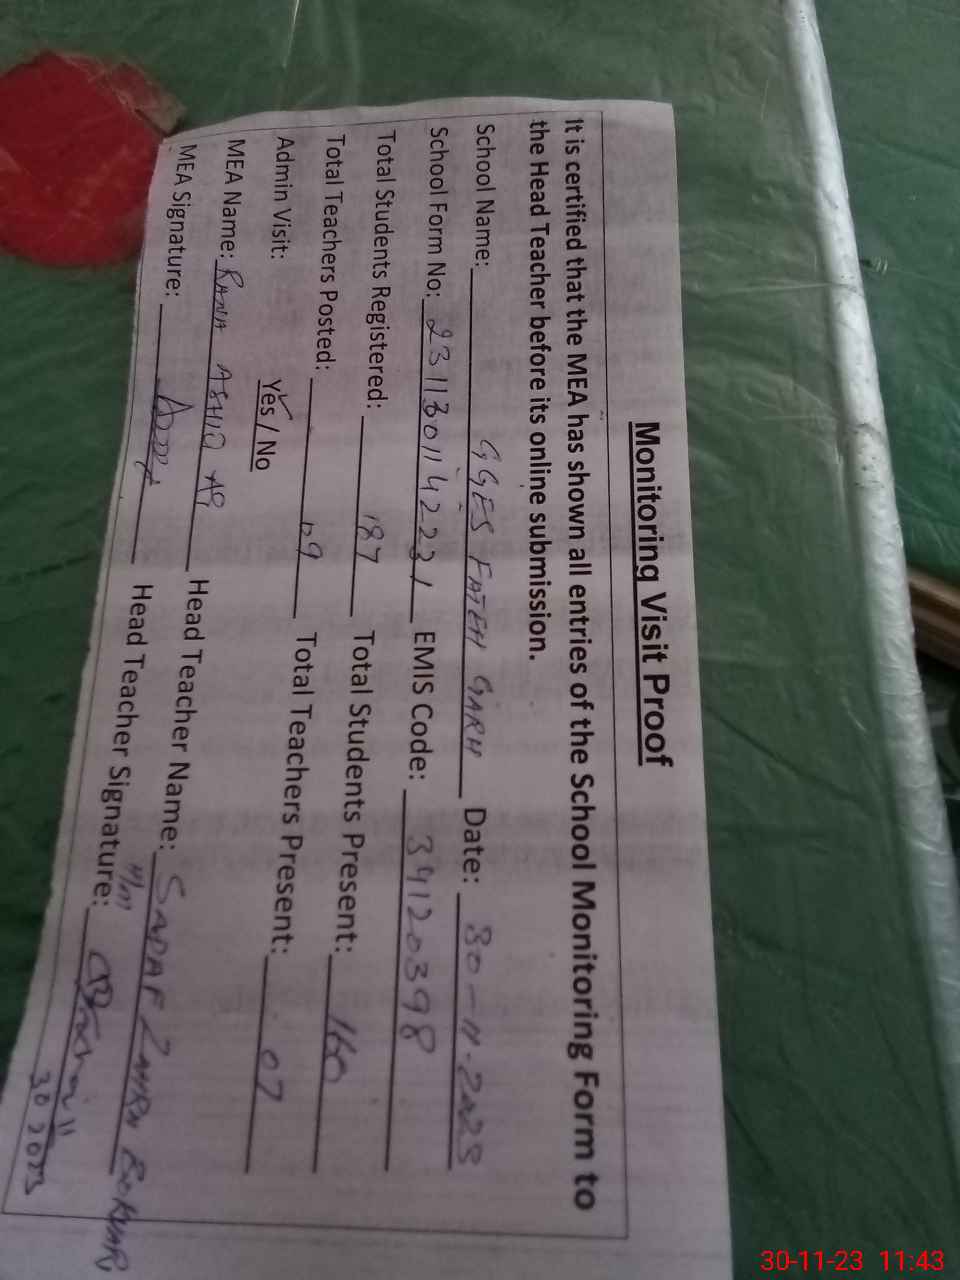 Monitoring Visit Proof
It is certified that the MEA has shown all entries of the School Monitoring Form to
the Head Teacher before its online submission.
School Name: GGES FATEH GARH Date: 30-11-2023
School Form No: 2311301142221 EMIS Code: 39120398
Total Students Registered: 187 Total Students Present: 160
Total Teachers Posted: 09 Total Teachers Present: 07
Admin Visit: Yes / No
MEA Name: RANA ASHIQ Head Teacher Name: SADAF ZAHRA
MEA Signature: Head Teacher Signature:
30 11 2023
30-11-23 11:43